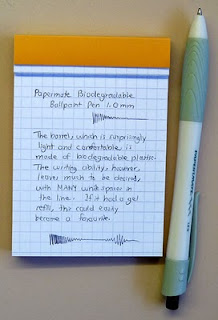 Papermate Biodegradable
Ballpoint Pen 1.0mm
The barrel, which is surprisingly
light and comfortable, is
made of biodegradable plastic.
The writing ability, however,
leaves much to be desired,
with MANY white spaces in
the line. If it had a gel
refill, this could easily
become a favourite.